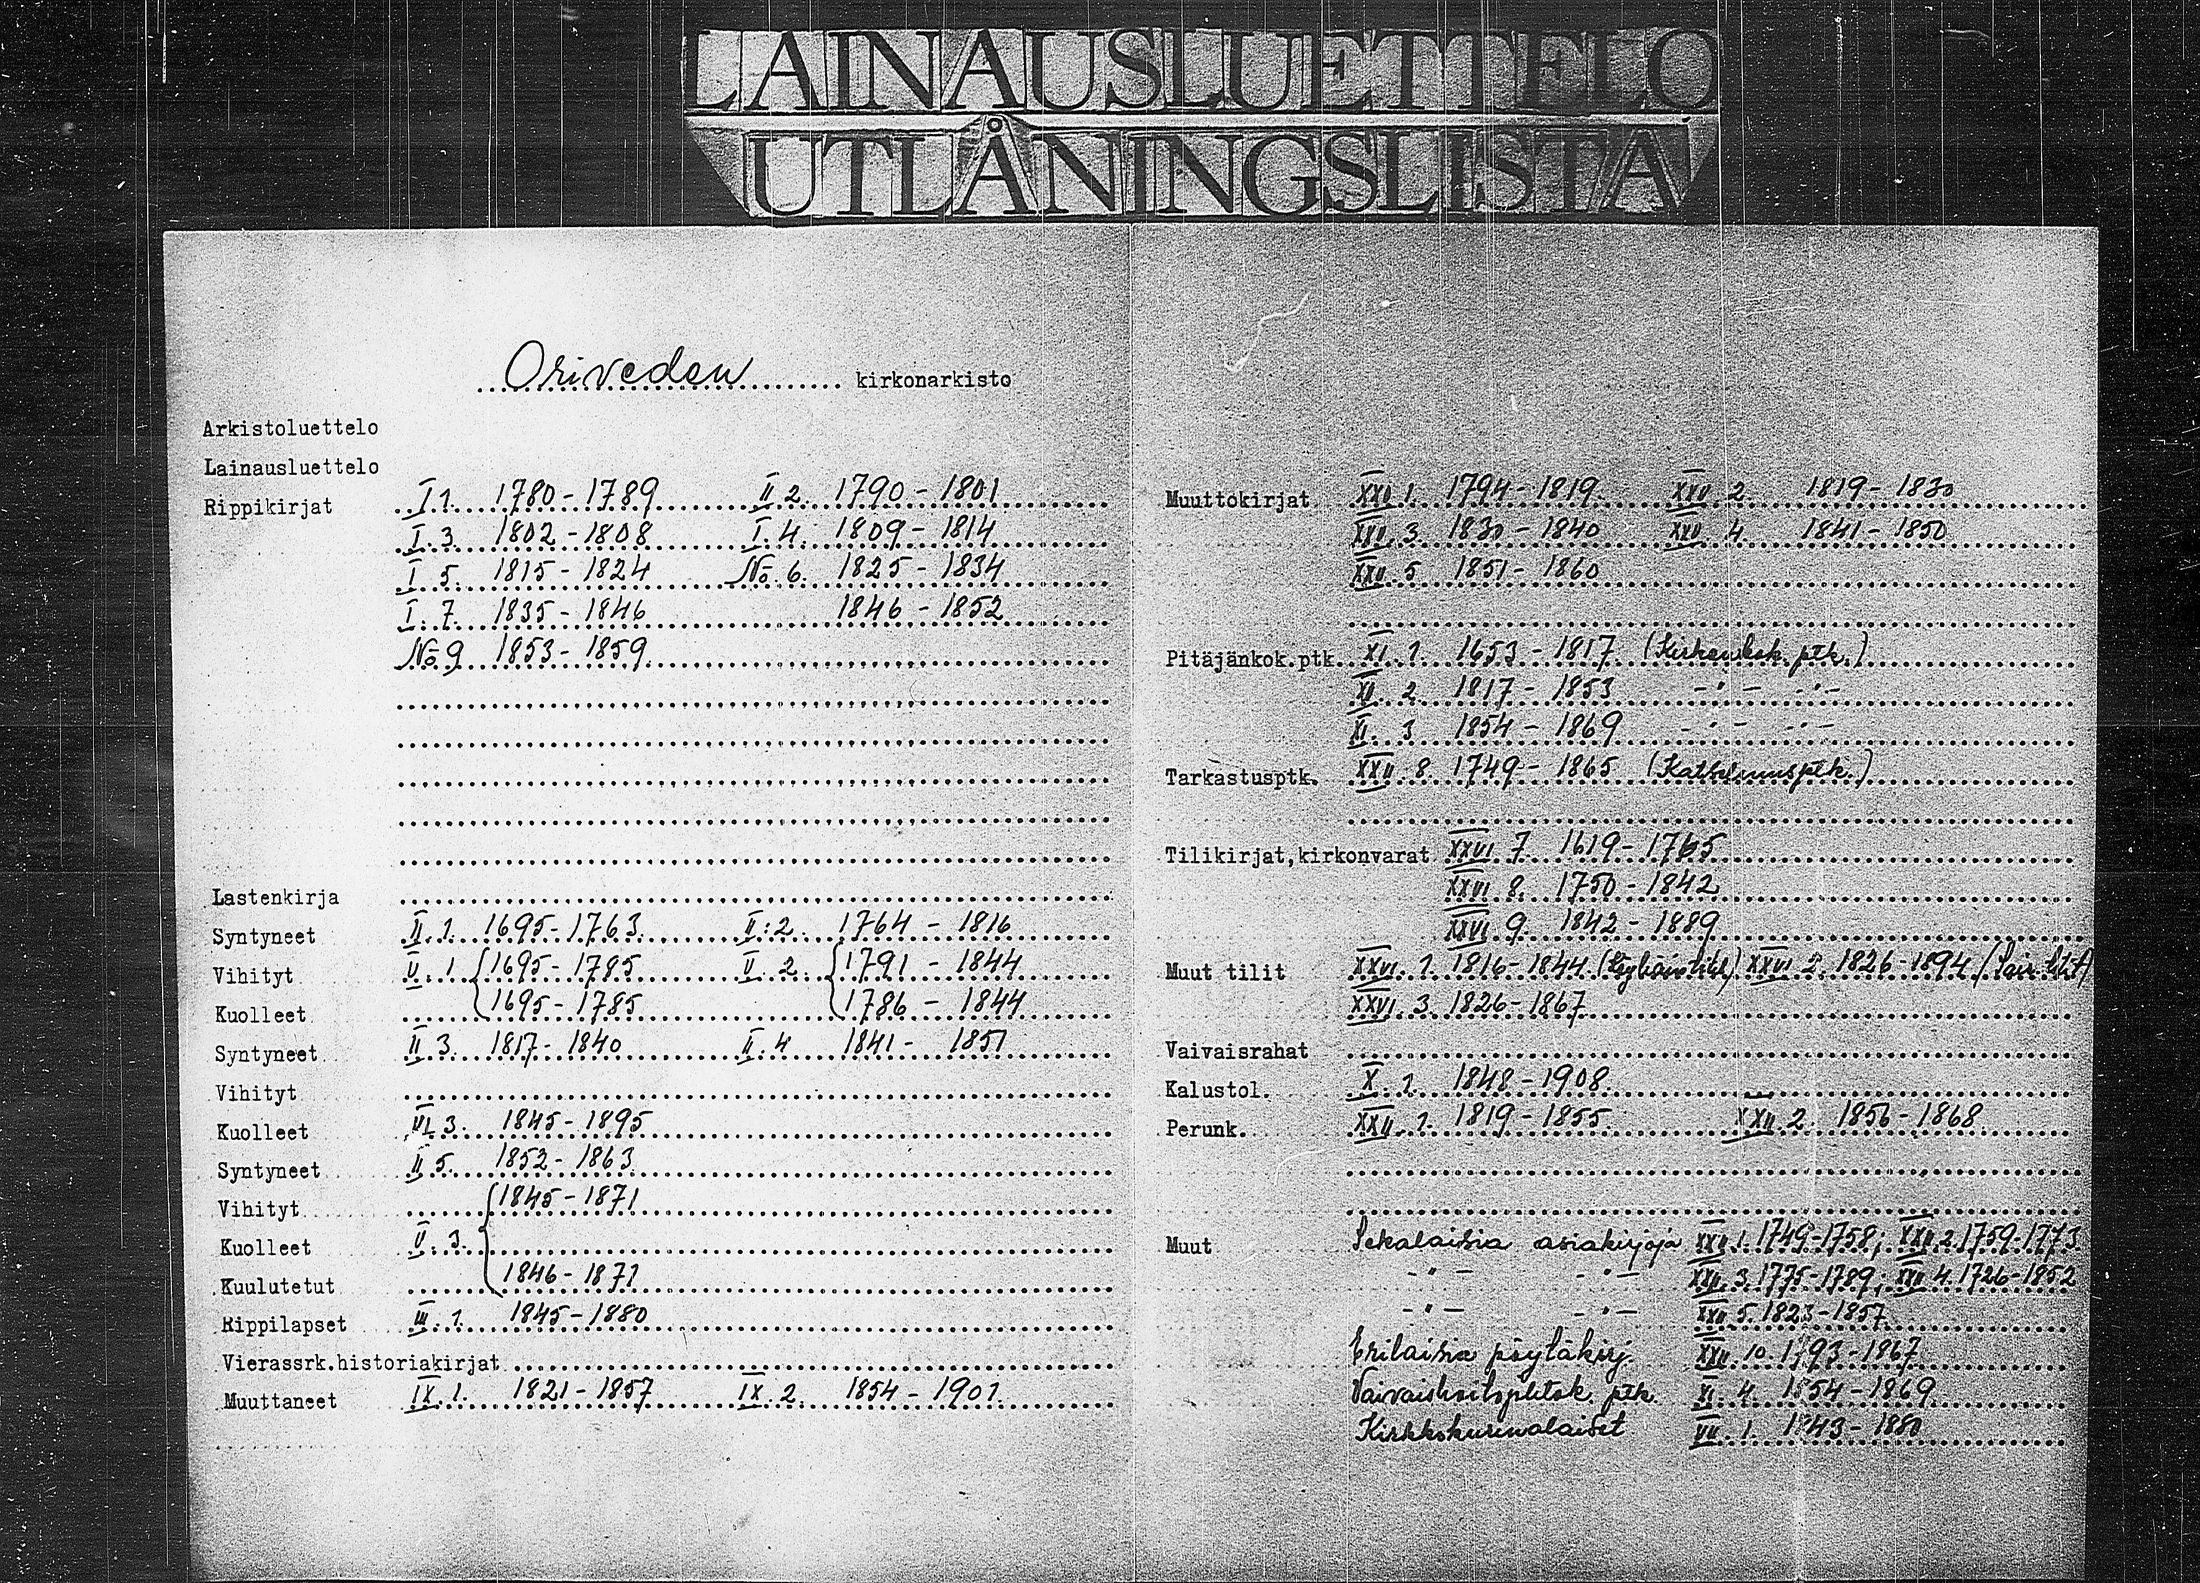 LAINAUSLUETTELO
UTLÅNINGSLISTA
Oriveden kirkonarkisto
Arkistoluettelo
Lainausluettelo
Rippikirjat I 1. 1780-1789 II 2. 1790-1801
I. 3 1802-1808 I. 4. 1809-1814
I 5. 1815-1824 No. 6. 1825-1834
I. 7. 1835-1846 1846-1852
No 9 1853-1859
Lastenkirja
Syntyneet II. 1. 1695-1763 II:2. 1764-1816
Vihityt V. 1 1695-1785 V. 2. 1791-1844
Kuolleet 1695-1785 1786-1844
Syntyneet II 3. 1817-1840 II. 4 1841-1851
Vihityt
Kuolleet VI 3. 1845-1895
Syntyneet II 5. 1852-1863
Vihityt 1845-1871
Kuolleet V. 3.
Kuulutetut 1846-1871
Rippilapset III. 1. 1845-1880
Vierassrk.historiakirjat
Muuttaneet IX. 1. 1821-1857 IX 2. 1854-1901
Muuttokirjat XXV 1. 1794-1819 XXV 2 1819-1830
XXV. 3. 1830-1840 XXV 4. 1841-1850
XXV. 5 1851-1860
Pitäjänkok.ptk. XI. 1. 1653-1817 (Kirkonkok. ptk.)
XI. 2. 1817-1853 -"- -"-
XI. 3 1854-1869 -"- -"-
Tarkastusptk. XXII. 8. 1749-1865 (Katselmusptk.)
Tilikirjat,kirkonvarat XXVI 7. 1619-1765
XXVI 8. 1750-1842
XXVI 9. 1842-1889
Muut tilit XXVI. 1. 1816-1844 XXVI 2. 1826-1894
XXVI. 3. 1826-1867
Vaivaisrahat
Kalustol. X. 1. 1848-1908.
Perunk. XXII. 1. 1819-1855 XXII. 2. 1856-1868
Muut Sekalaisia asiakirjoja XXII.1. 1749-1758; XXII 2. 1759-1773
-"- -"- XXII. 3. 1775-1789; XXII 4. 1726-1852
-"- -"- XXII 5. 1823-1857
Erilaisia pöytäkirj. XXII. 10. 1793-1867
Vaivaishoitopltok. ptk. XI. 4. 1854-1869
Kirkkokurinalaiset VII. 1. 1843-1880